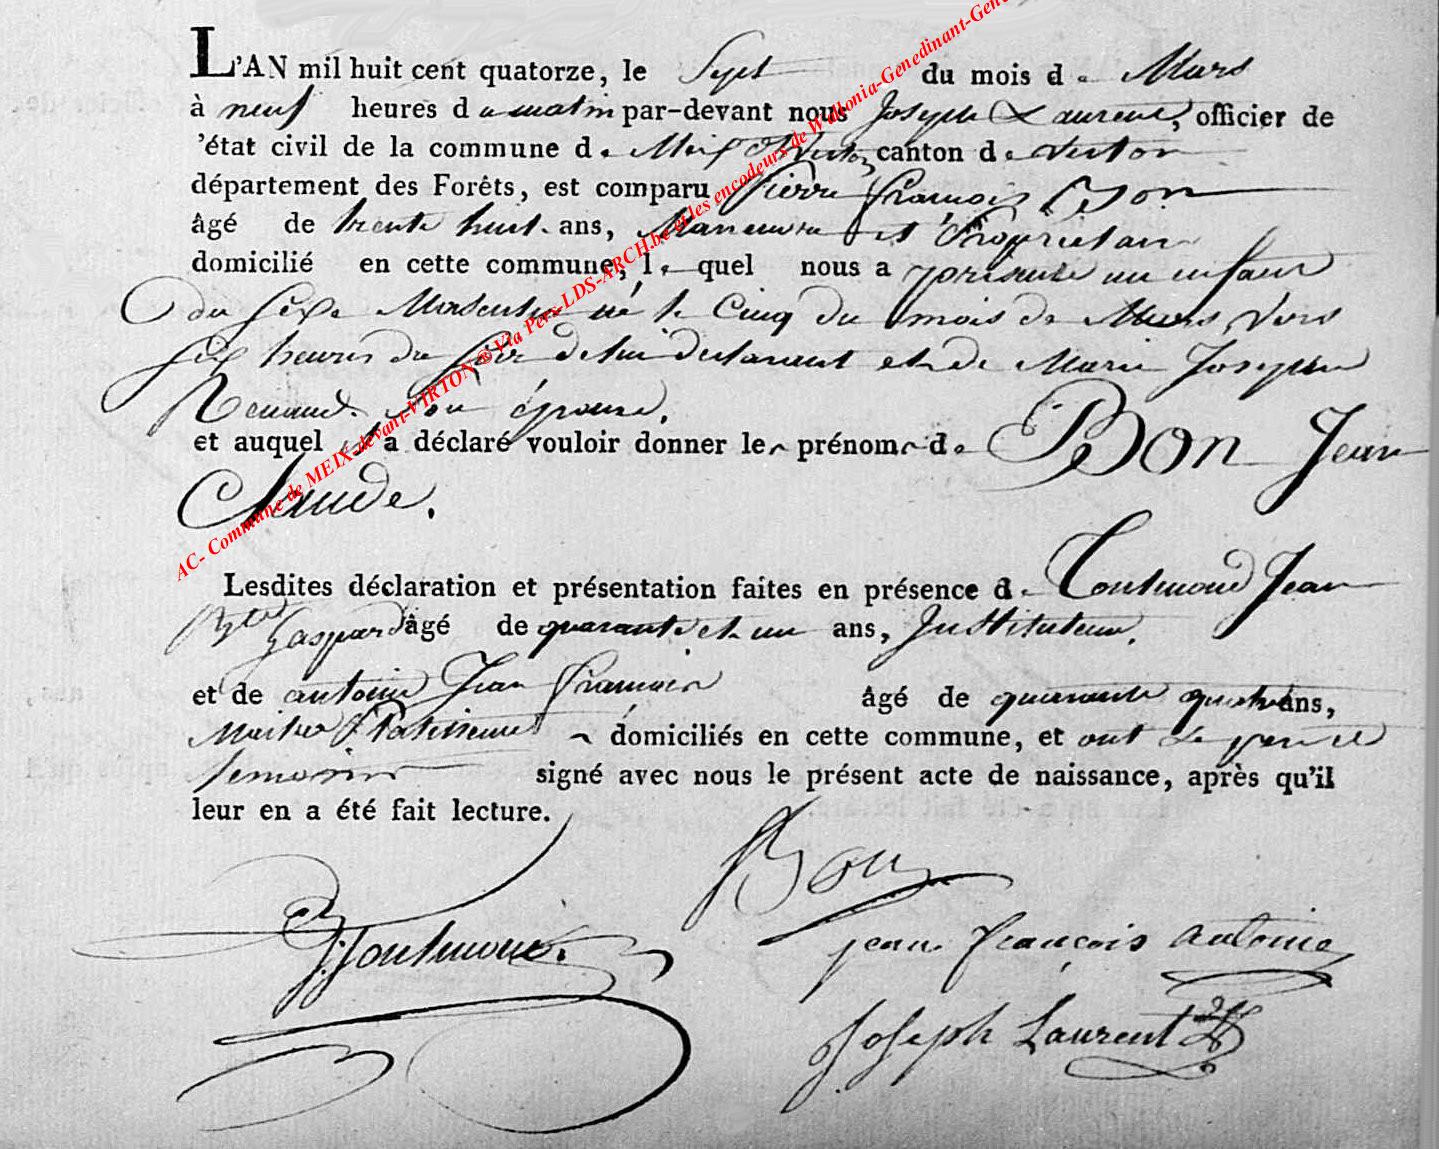 L'AN mil huit cent quatorze, le Sept du mois de Mars
à neuf heures du matin par-devant nous Joseph Laurent, officier de
'état civil de la commune de Meix Dt Virton canton de Virton
département des Forêts, est comparu Pierre François Bon
âgé de trente huit ans, Maneuvre et Propriétaire
domicilié en cette commune, lequel nous a présenté un enfant
du sexe Masculin né le Cinq du mois de Mars, vers
six heures du soir de lui déclarant et de Marie Josephe
Renauld son épouse,
et auquel il a déclaré vouloir donner les prénoms de Bon Jean
Claude.
Lesdites déclaration et présentation faites en présence de Toutmond Jean
Bte Gaspard âgé de quarante et un ans, Instituteur.
et de antoine Jean François âgé de quarante quatre ans,
domiciliés en cette commune, et ont le père et les
témoins signé avec nous le présent acte de naissance, après qu'il
leur en a été fait lecture.
Bon
Jean François Antoine
Joseph Laurent
AC- Commune de MEIX-devant-VIRTON ® Via Pers-LDS-ARCH.be et les encodeurs de Wallonia-Genedinant-Gene